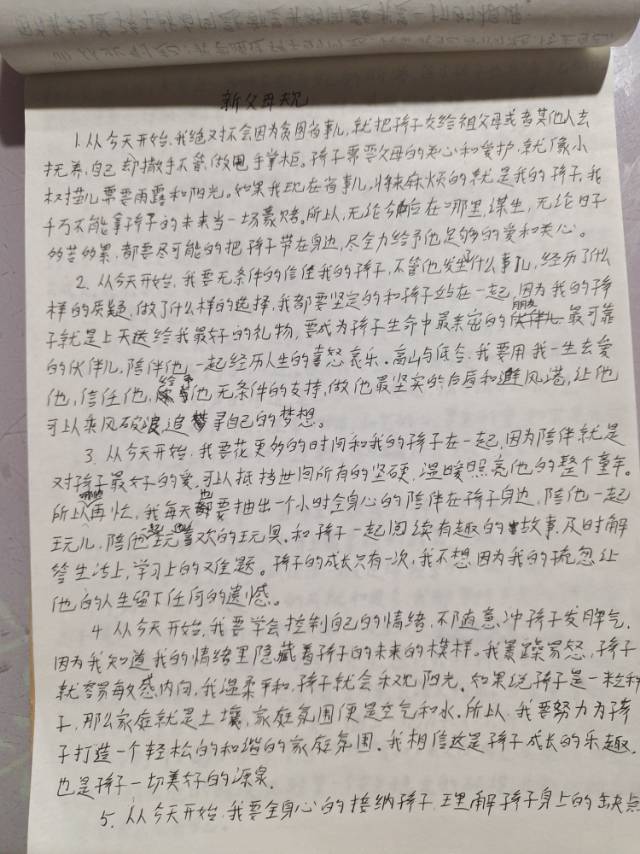 新父母规
1. 从今天开始,我绝对不会因为贪图省事儿,就把孩子交给祖父母或者其他人去
抚养,自己却撒手不管,做甩手掌柜。孩子需要父母的关心和爱护,就像小
树苗儿需要雨露和阳光。如果我现在省事儿,将来麻烦的就是我的孩子,我
千万不能拿孩子的未来当一场豪赌。所以,无论今后在哪里谋生,无论日子
的苦的累,都要尽可能的把孩子带在身边,尽全力给予他足够的爱和关心。
2. 从今天开始,我要无条件的信任我的孩子,不管他发生什么事儿,经历了什么
样的质疑,做了什么样的选择,我都要坚定的和孩子站在一起,因为我的孩
子就是上天送给我最好的礼物,要成为孩子生命中最亲密的朋友最可靠
的伙伴儿,陪伴他一起经历人生的喜怒哀乐。高山与低谷,我要用我一生去爱
他,信任他,给予他无条件的支持,做他最坚实的后盾和避风港,让他
可以乘风破浪,追梦寻自己的梦想。
3. 从今天开始,我要花更多的时间和我的孩子在一起,因为陪伴就是
对孩子最好的爱,可以抵挡世间所有的坚硬,温暖照亮他的整个童年。
所以哪怕再忙,我每天也要抽出一个小时全身心的陪伴在孩子身边,陪他一起
玩儿,陪他一起玩喜欢的玩具,和孩子一起阅读有趣的故事,及时解
答生活上,学习上的难题。孩子的成长只有一次,我不想因为我的疏忽让
他的人生留下任何的遗憾。
4. 从今天开始,我要学会控制自己的情绪,不随意冲孩子发脾气,
因为我知道我的情绪里隐藏着孩子的未来的模样。我暴躁易怒,孩子
就容易敏感内向,我温柔平和,孩子就会乐观阳光。如果说孩子是一粒种
子,那么家庭就是土壤,家庭氛围便是空气和水。所以,我要努力为孩
子打造一个轻松的和谐的家庭氛围。我相信这是孩子成长的乐趣,
也是孩子一切美好的源泉。
5. 从今天开始,我要全身心的接纳孩子,理解孩子身上的缺点